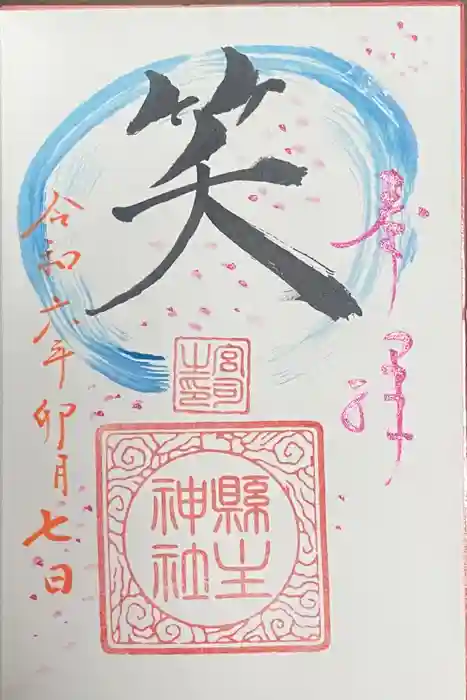 奉拝
笑
宮司之印
縣主神社
令和六年卯月七日